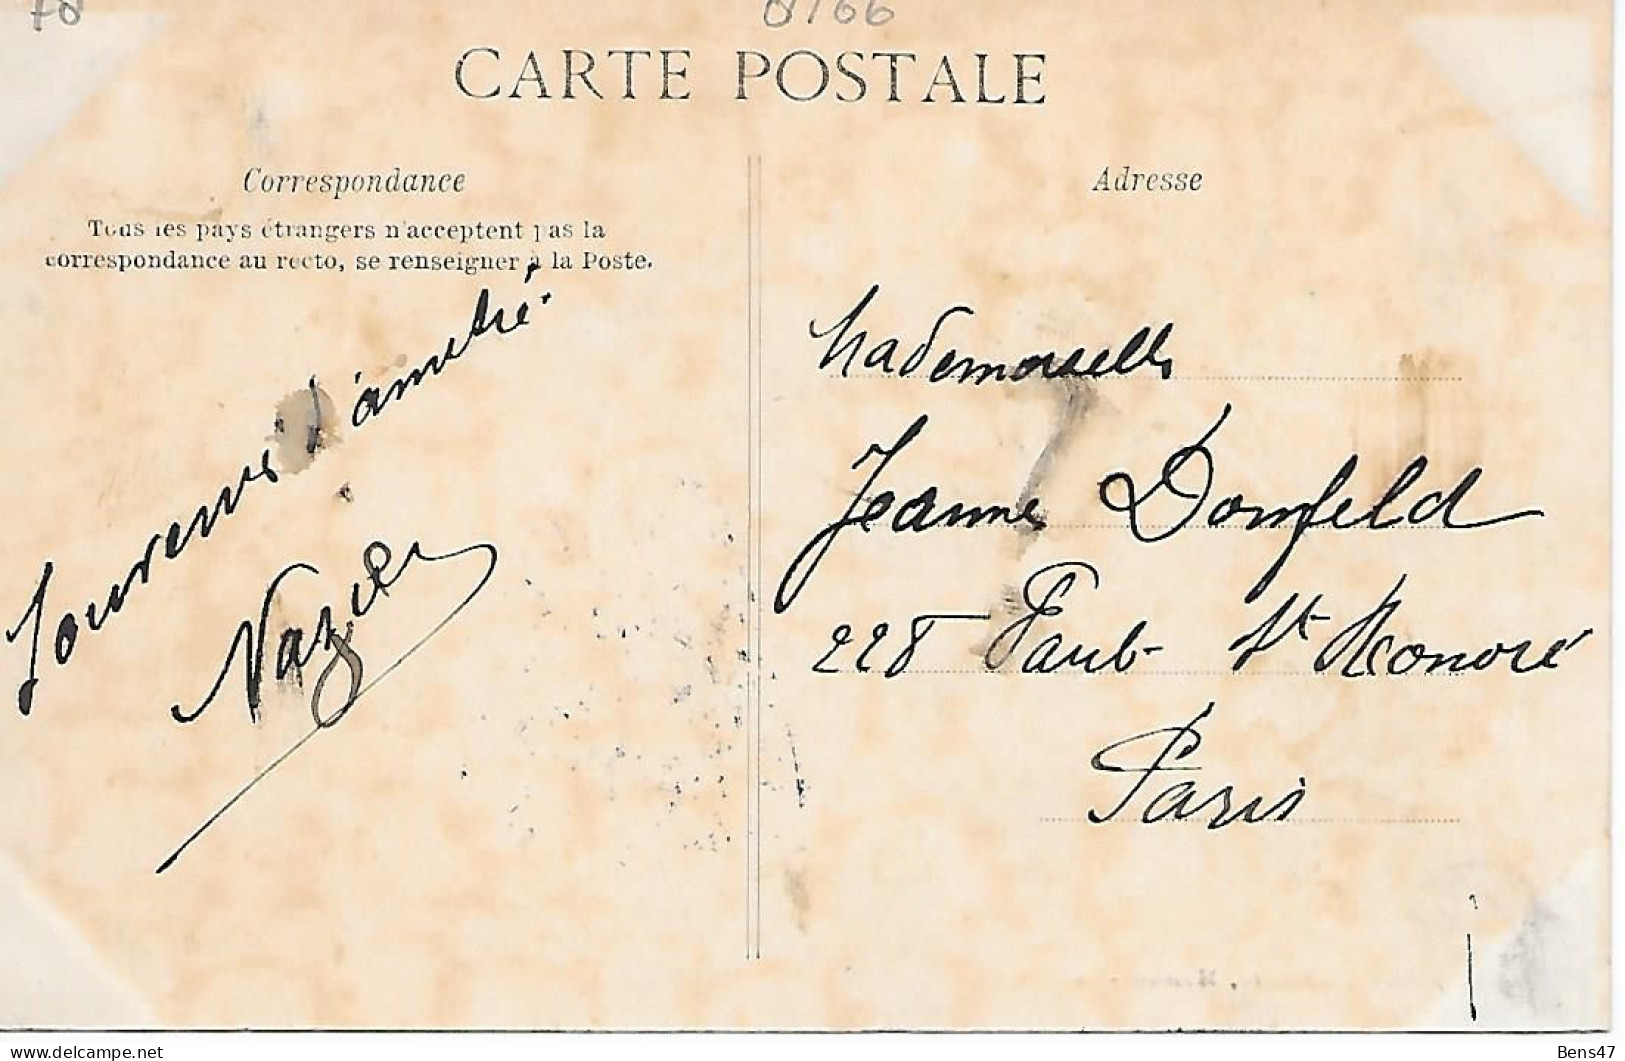 78
8766
CARTE POSTALE
Correspondance
Tous les pays étrangers n'acceptent pas la
correspondance au recto, se renseigner à la Poste.
Souvenir d'amitié.
Adresse
Mademoiselle
Jeanne Dornfeld
228 Faub- St Honoré
Paris
Bens47